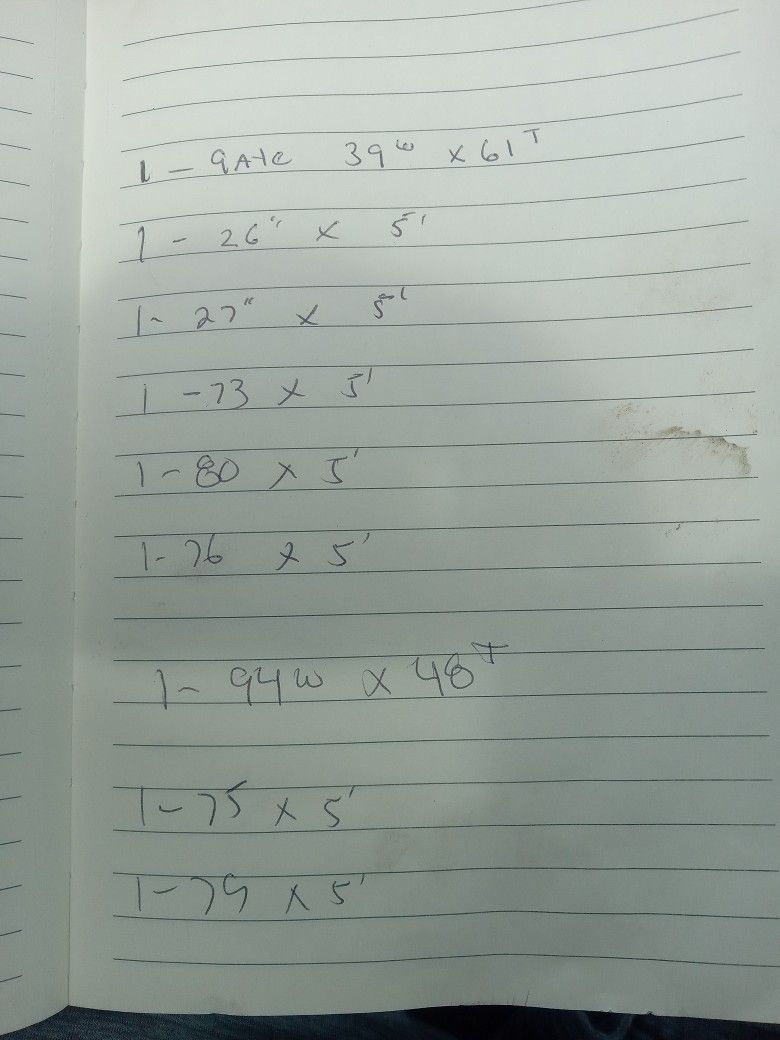 1 - gate 39w x 61T
1 - 26" x 5'
1 - 27" x 5'
1 - 73 x 5'
1 - 80 x 5'
1 - 76 x 5'
1 - 94w x 48T
1 - 75 x 5'
1 - 79 x 5'